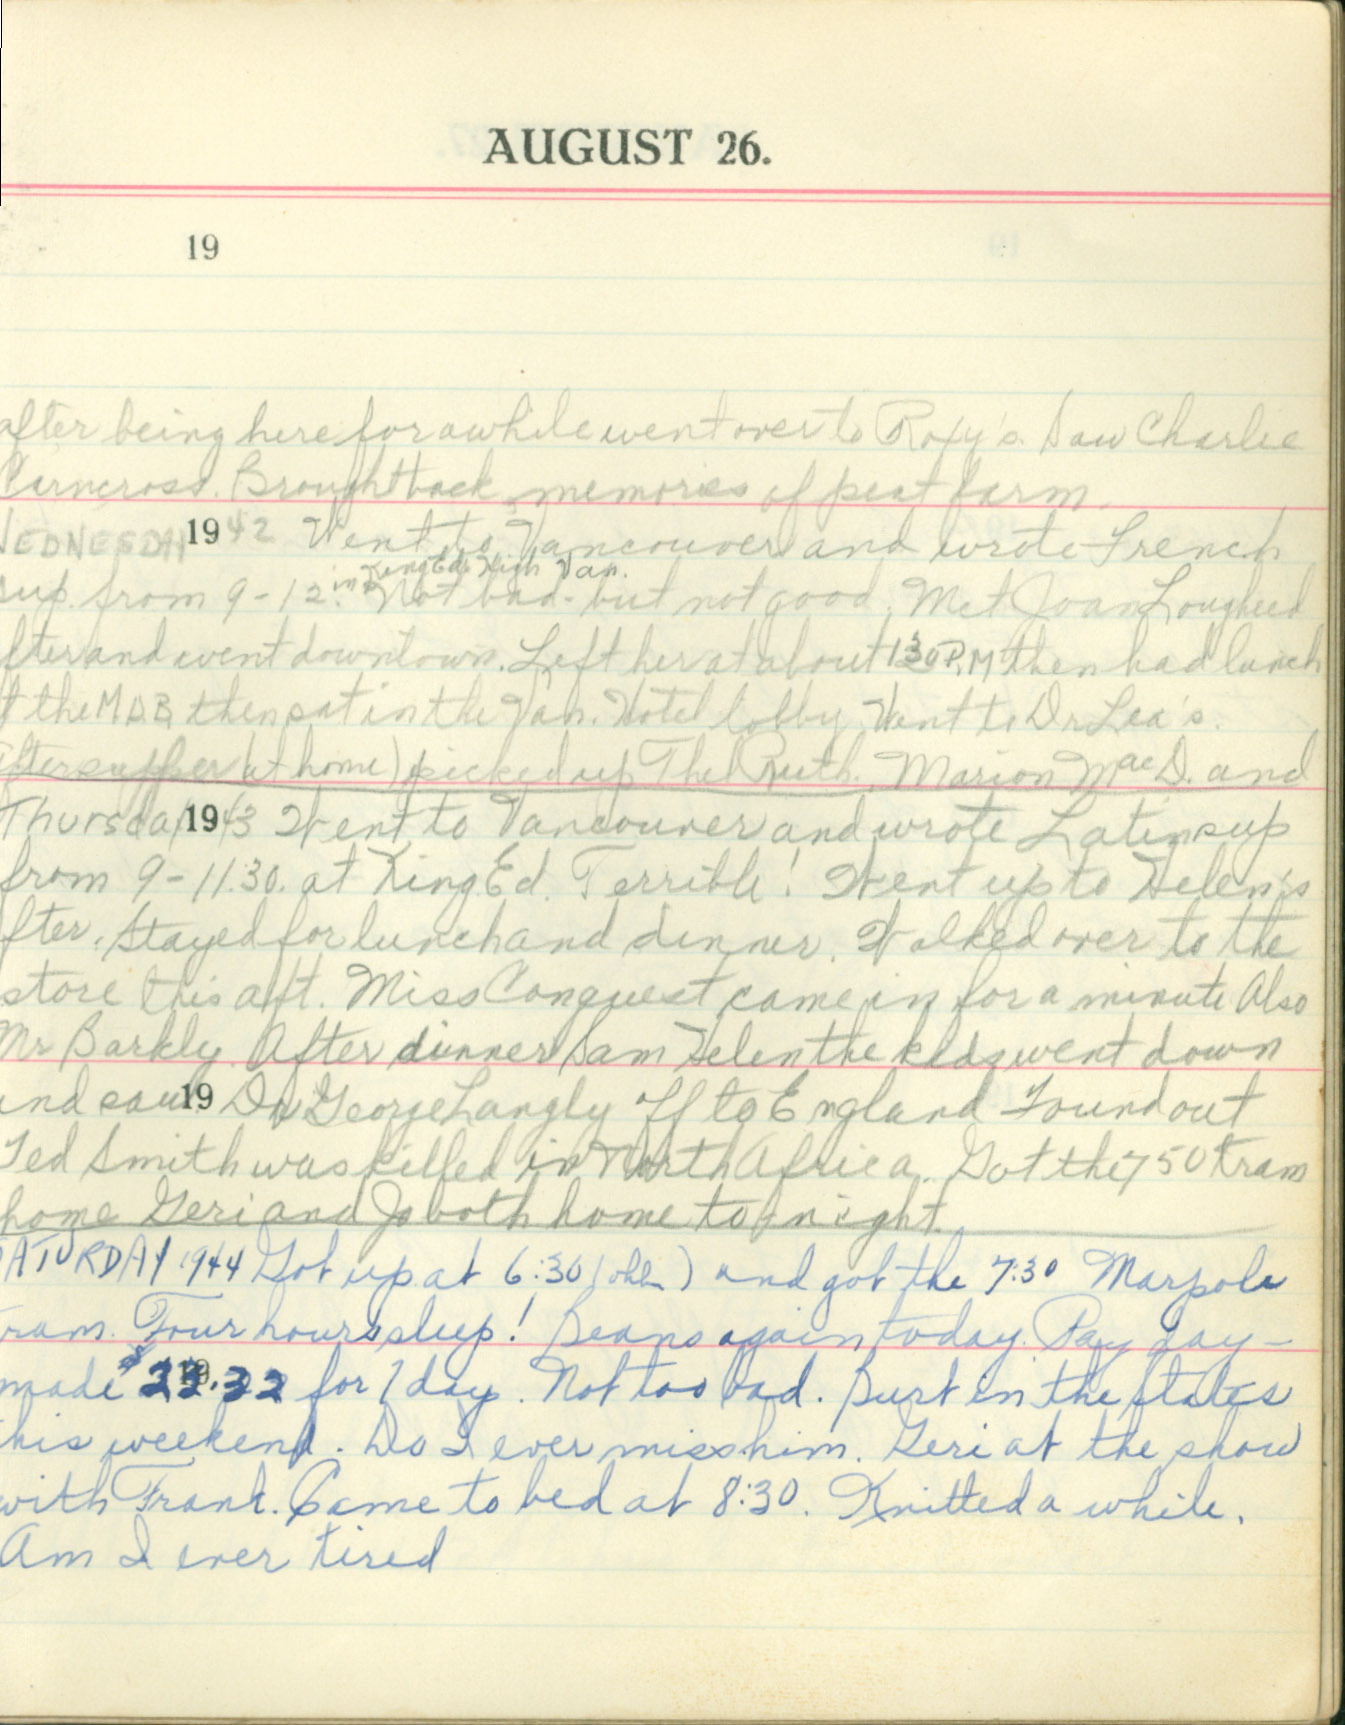 AUGUST 26.
19
after being here for awhile went over to Roxy's. Saw Charlie
Carncross. Brought back memories of peat farm.
WEDNESDAY 1942 Went to Vancouver and wrote French
in King Ed. High Van.
sup. from 9-12. Not bad - but not good. Met Joan Lougheed
after and went downtown. Left her at about 130 P.M then had lunch
at the M.D.B, then sat in the Van. Hotel lobby. Went to Dr Lea's.
After supper (at home) picked up Thel Ruth. Marion MacD. and
Thursday 1943 Went to Vancouver and wrote Latin sup
from 9-11.30. at King Ed. Terrible! Went up to Helen's
after. Stayed for lunch and dinner. Walked over to the
store this aft. Miss Conquest came in for a minute Also
Mr Barkly. After dinner Sam Helen the kids went down
and saw 19 Dr George Langly off to England Found out
Ted Smith was killed in North Africa. Got the 750 tram
home Geri and Jo both home tonight.
SATURDAY 1944 Got up at 6:30 (ohh) and got the 7:30 Marpole
tram. Four hours sleep! Beans again today. Pay day -
made $23.32 for 7 day. Not too bad. Burt in the states
this weekend. Do I ever miss him. Geri at the show
with Frank. Came to bed at 8:30. Knitted a while.
Am I ever tired